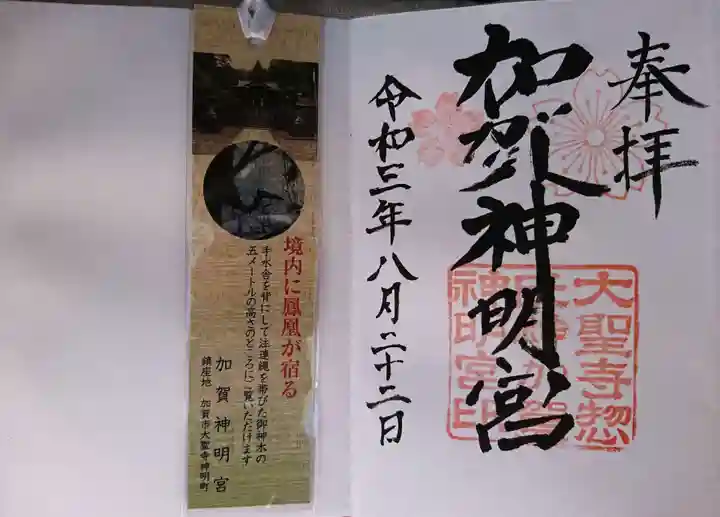 奉拝
加賀神明宮
令和三年八月二十二日
大聖寺惣
神明宮印
境内に鳳凰が宿る
手水舎を背にして注連縄を帯びた御神木の
五メートルの高さのところにご覧いただけます
加賀神明宮
鎮座地 加賀市大聖寺神明町